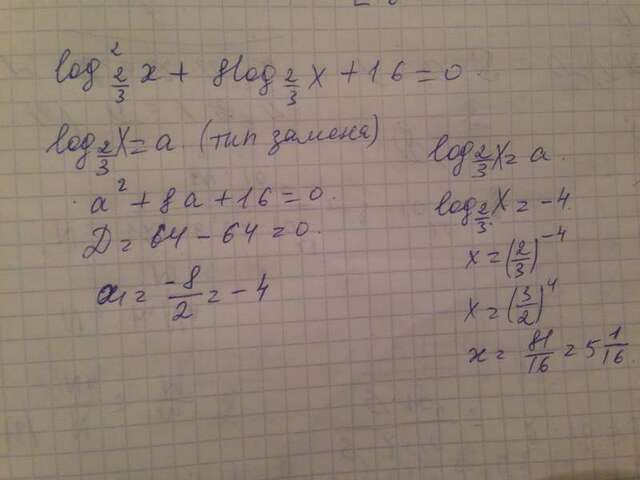 log²_{2/3} x + 8log_{2/3} x + 16 = 0.
log_{2/3} x = a (тип замена)
a² + 8a + 16 = 0.
D = 64 - 64 = 0.
a = -8/2 = -4
log_{2/3} x = a.
log_{2/3} x = -4
x = (2/3)^{-4}
x = (3/2)^4
x = 81/16 = 5 1/16